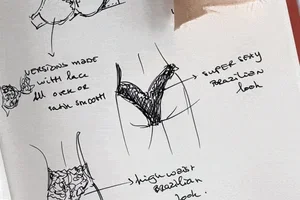 VERSIONS MADE
with lace
all over or
satin smooth
SUPER SEXY
BRAZILIAN
look
high waist
Brazilian
look.